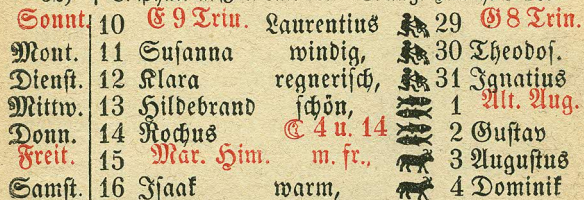 Sonnt. 10 E 9 Trin. Laurentius 29 G 8 Trin.
Mont. 11 Susanna windig, 30 Theodos.
Dienst. 12 Klara regnerisch, 31 Ignatius
Mittw. 13 Hildebrand schön, 1 Alt. Aug.
Donn. 14 Rochus ☾ 4 u. 14 2 Gustav
Freit. 15 Mar. Him. m. fr., 3 Augustus
Samst. 16 Isaak warm, 4 Dominik